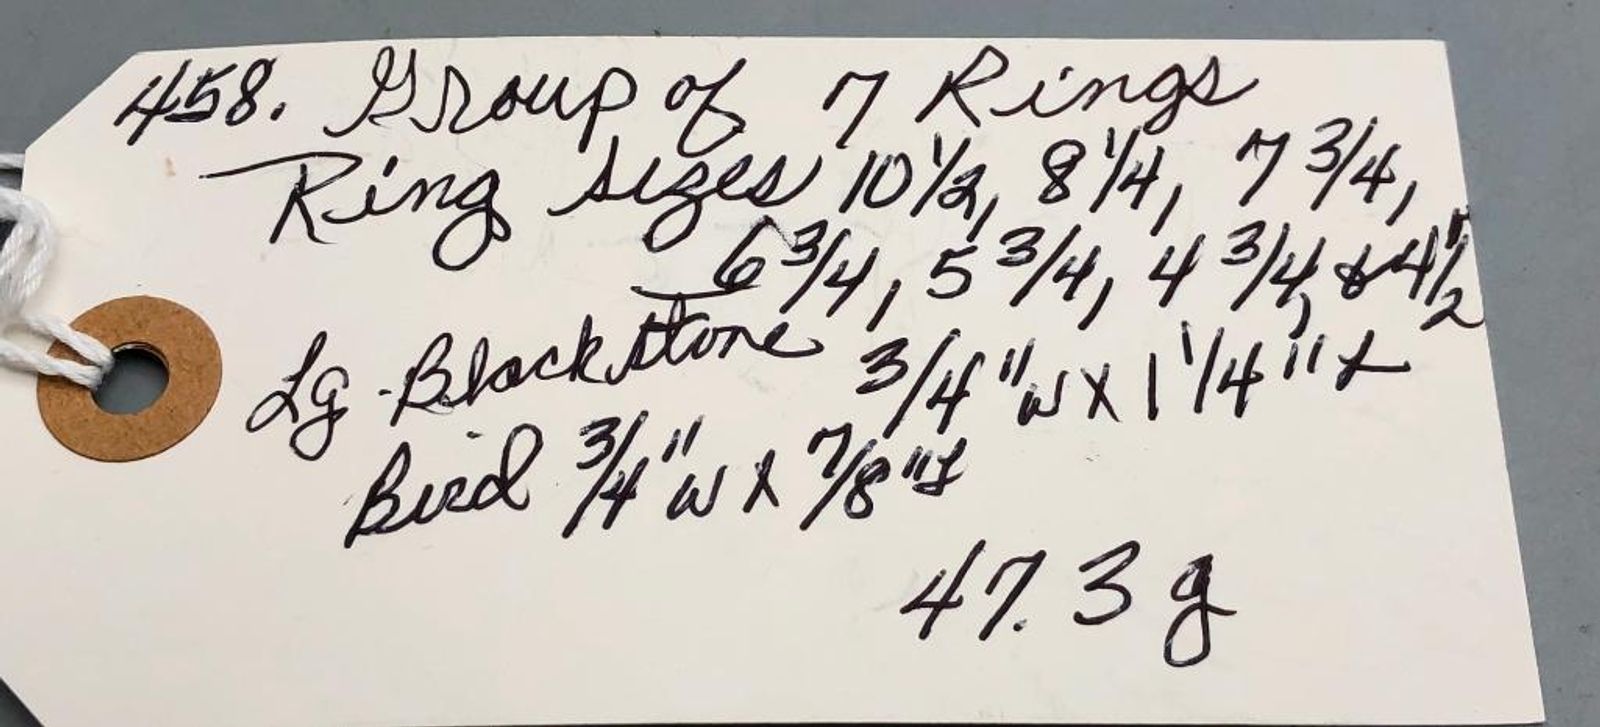 458. Group of 7 Rings
Ring sizes 10 1/2, 8 1/4, 7 3/4,
6 3/4, 5 3/4, 4 3/4, & 4 1/2
Lg Black stone 3/4" w x 1 1/4" L
Bird 3/4" w x 7/8" L
47.3 g